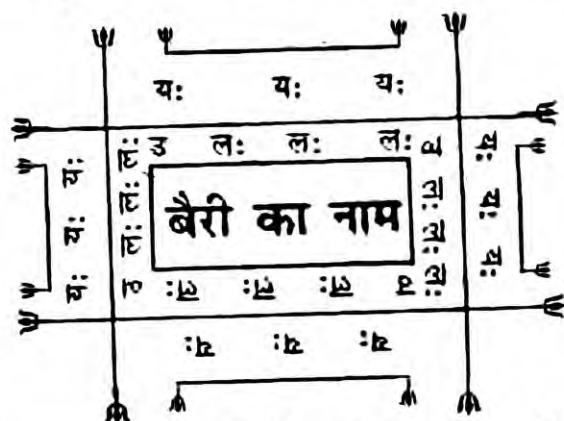 यः यः यः
लः लः लः लः
यः यः यः
लः लः लः
बैरी का नाम
लः लः लः
यः यः यः
लः लः लः
यः यः यः